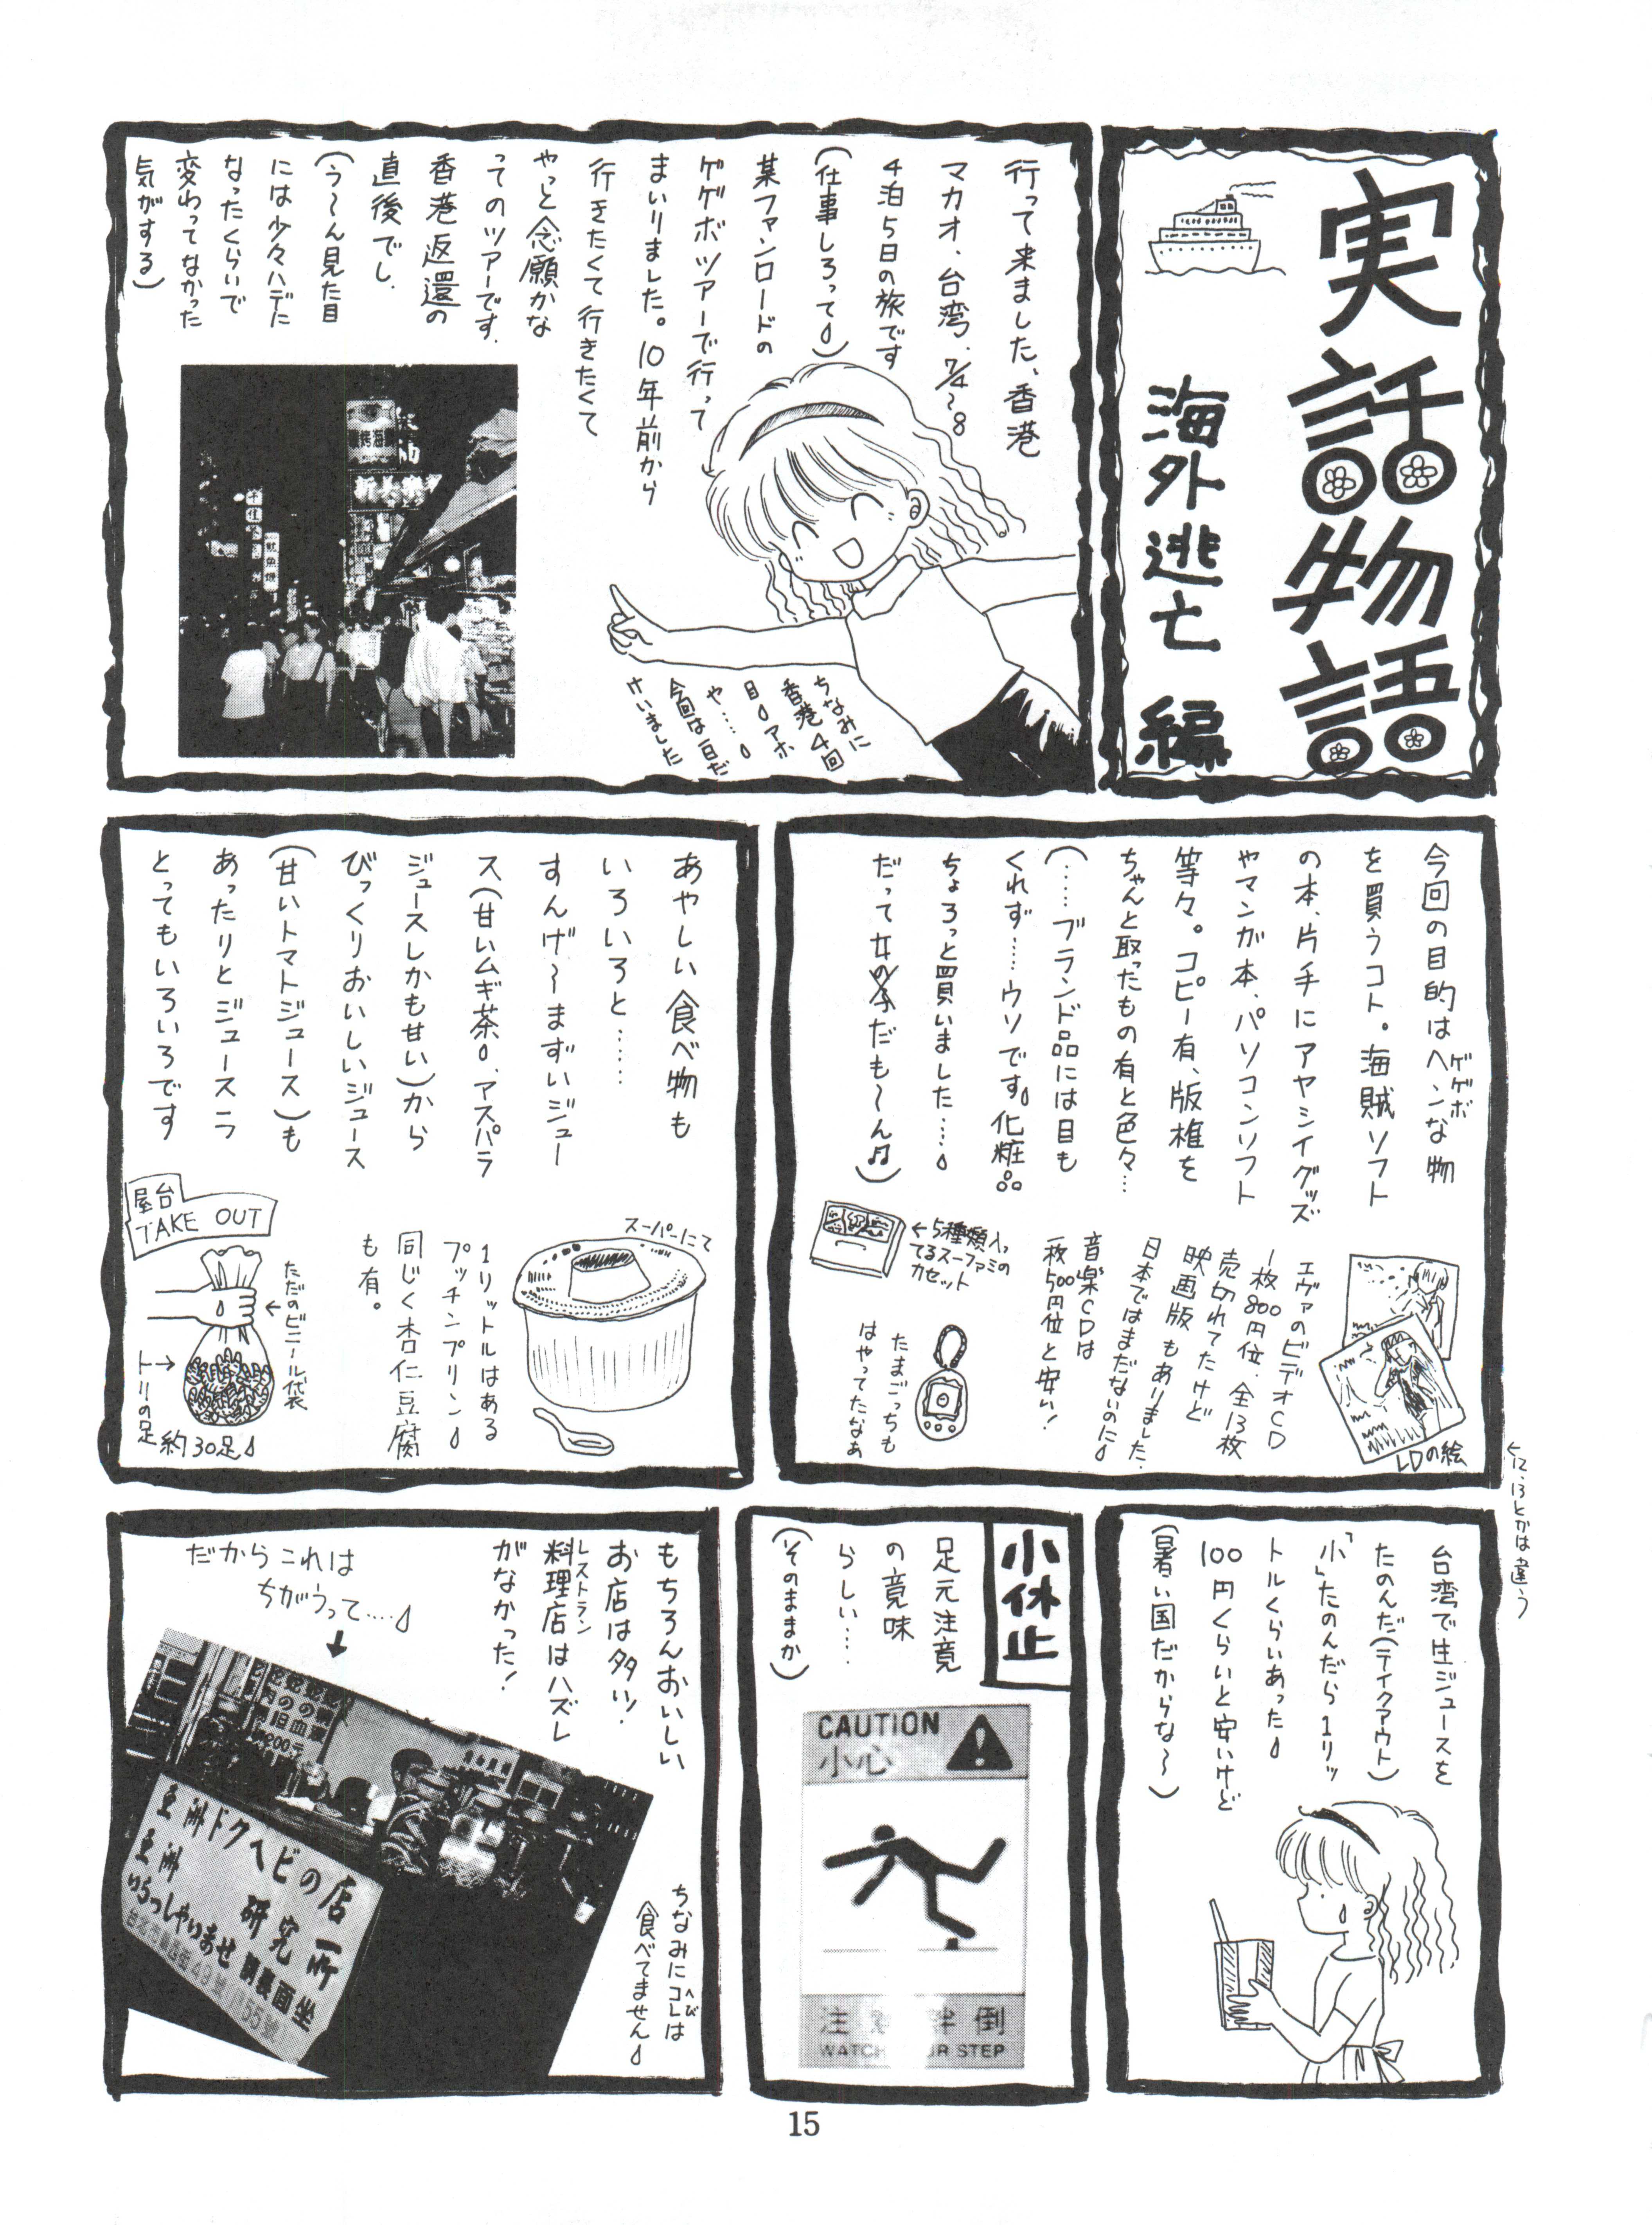 実話物語
海外逃亡 編
行って来ました、香港
マカオ、台湾、7/4～8
4泊5日の旅です
(仕事しろって)
某ファンロードの
ゲゲボツアーで行って
まいりました。10年前から
行きたくて行きたくて
やっと念願かな
ってのツアーです。
香港返還の
直後でし、
(う～ん見た目
には少々ハデに
なったくらいで
変わってなかった
気がする)
ちなみに
香港4回
目アホ
や……
今回は一日だ
けいました
新長樂
今回の目的はヘンな物
ゲゲボ
を買うコト。海賊ソフト
の本、片手にアヤシイグッズ
やマンガ本、パソコンソフト
等々。コピー有、版権を
ちゃんと取ったもの有と色々…
(……ブランド品には目も
くれず……ウソです。化粧品
ちょろっと買いました……
だって女の子だも～ん♫)
エヴァのビデオCD
一枚800円位、全13枚
売切れてたけど
映画版もありました。
日本ではまだないのに
音楽CDは
一枚500円位と安い!
LDの絵
←5種類入っ
てるスーファミの
カセット
たまごっちも
はやってたなぁ
←12、13とかは違う
あやしい食べ物も
いろいろと……
すんげ～まずいジュー
ス(甘いムギ茶、アスパラ
ジュースしかも甘い)から
びっくりおいしいジュース
(甘いトマトジュース)も
あったりとジュースラ
とってもいろいろです
スーパーにて
1リットルはある
プッチンプリン
同じく杏仁豆腐
も有。
屋台
TAKE OUT
←ただのビニール袋
トリの足→
約30足
台湾で生ジュースを
たのんだ(テイクアウト)
「小」たのんだら1リッ
トルくらいあった
100円くらいと安いけど
(暑い国だからな～)
小休止
足元注意
の意味
らしい……
(そのままか)
CAUTION
小心
注意 絆倒
WATCH YOUR STEP
もちろんおいしい
お店は多い!
料理店はハズレ
レストラン
がなかった!
だからこれは
ちがうって……
↓
亜洲ドクヘビの店
亜洲 研究所
いらっしゃいませ 調裏面坐
ちなみにコレは
へび
食べてません
15